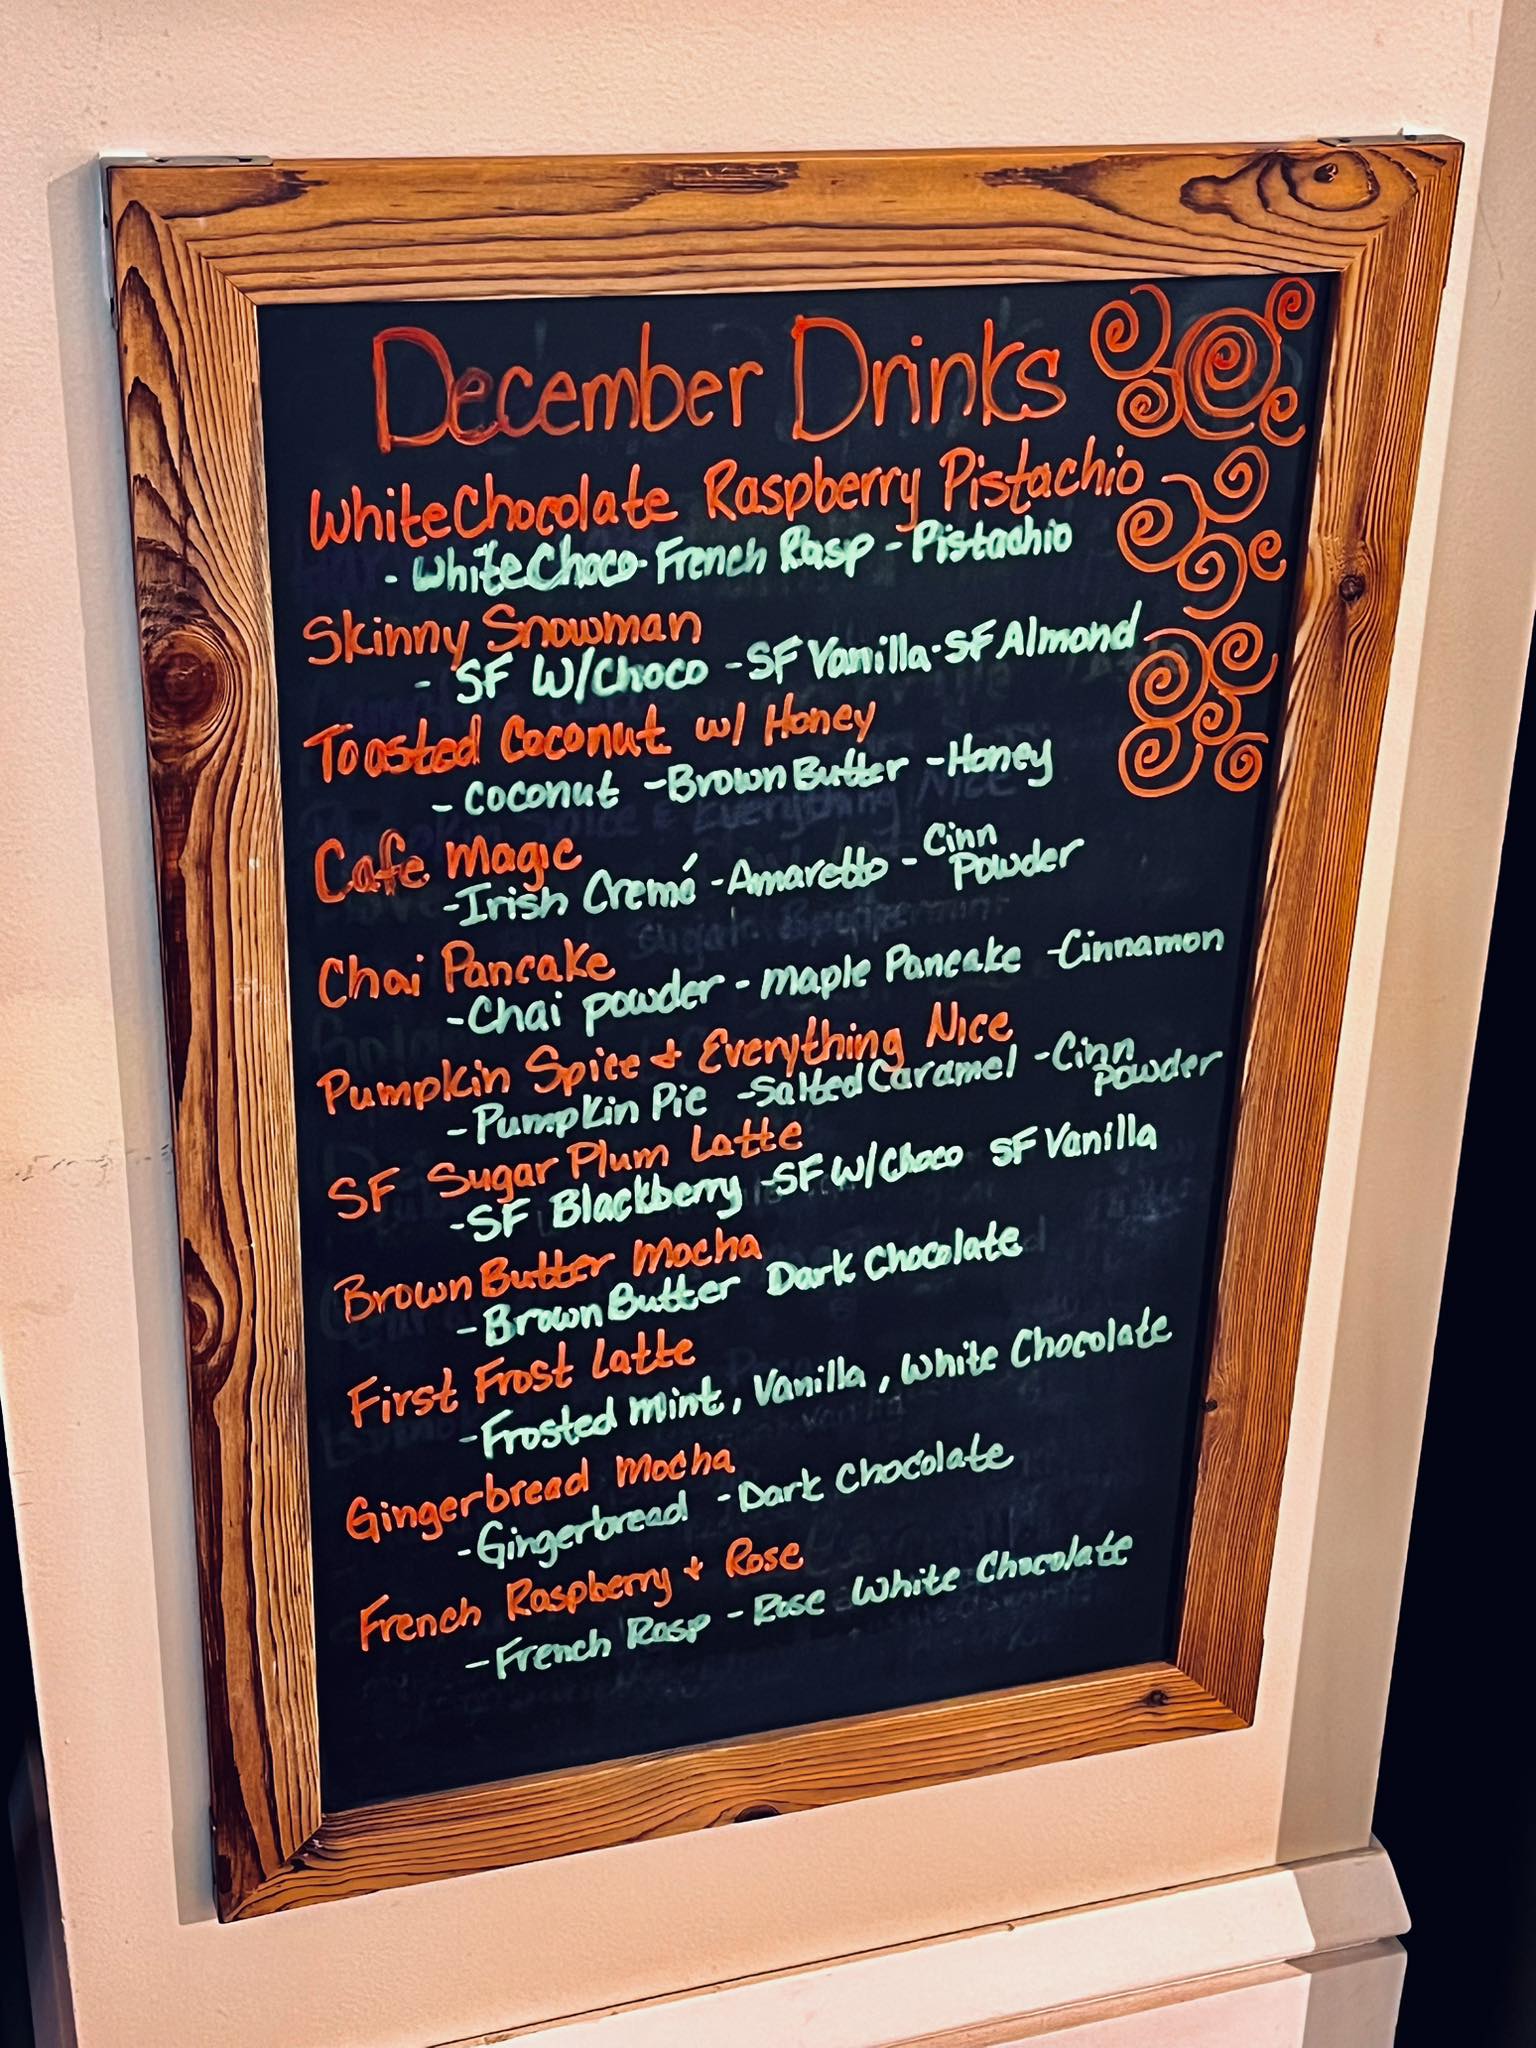 December Drinks
White Chocolate Raspberry Pistachio
- White Choco - French Rasp - Pistachio
Skinny Snowman
- SF W/Choco - SF Vanilla - SF Almond
Toasted Coconut w/ Honey
- Coconut - Brown Butter - Honey
Cafe Magic
- Irish Cremé - Amaretto - Cinn Powder
Chai Pancake
- Chai powder - maple Pancake - Cinnamon
Pumpkin Spice + Everything Nice
- Pumpkin Pie - Salted Caramel - Cinn Powder
SF Sugar Plum Latte
- SF Blackberry - SF W/Choco SF Vanilla
Brown Butter Mocha
- Brown Butter Dark Chocolate
First Frost Latte
- Frosted mint, Vanilla, White Chocolate
Gingerbread Mocha
- Gingerbread - Dark Chocolate
French Raspberry + Rose
- French Rasp - Rose White Chocolate